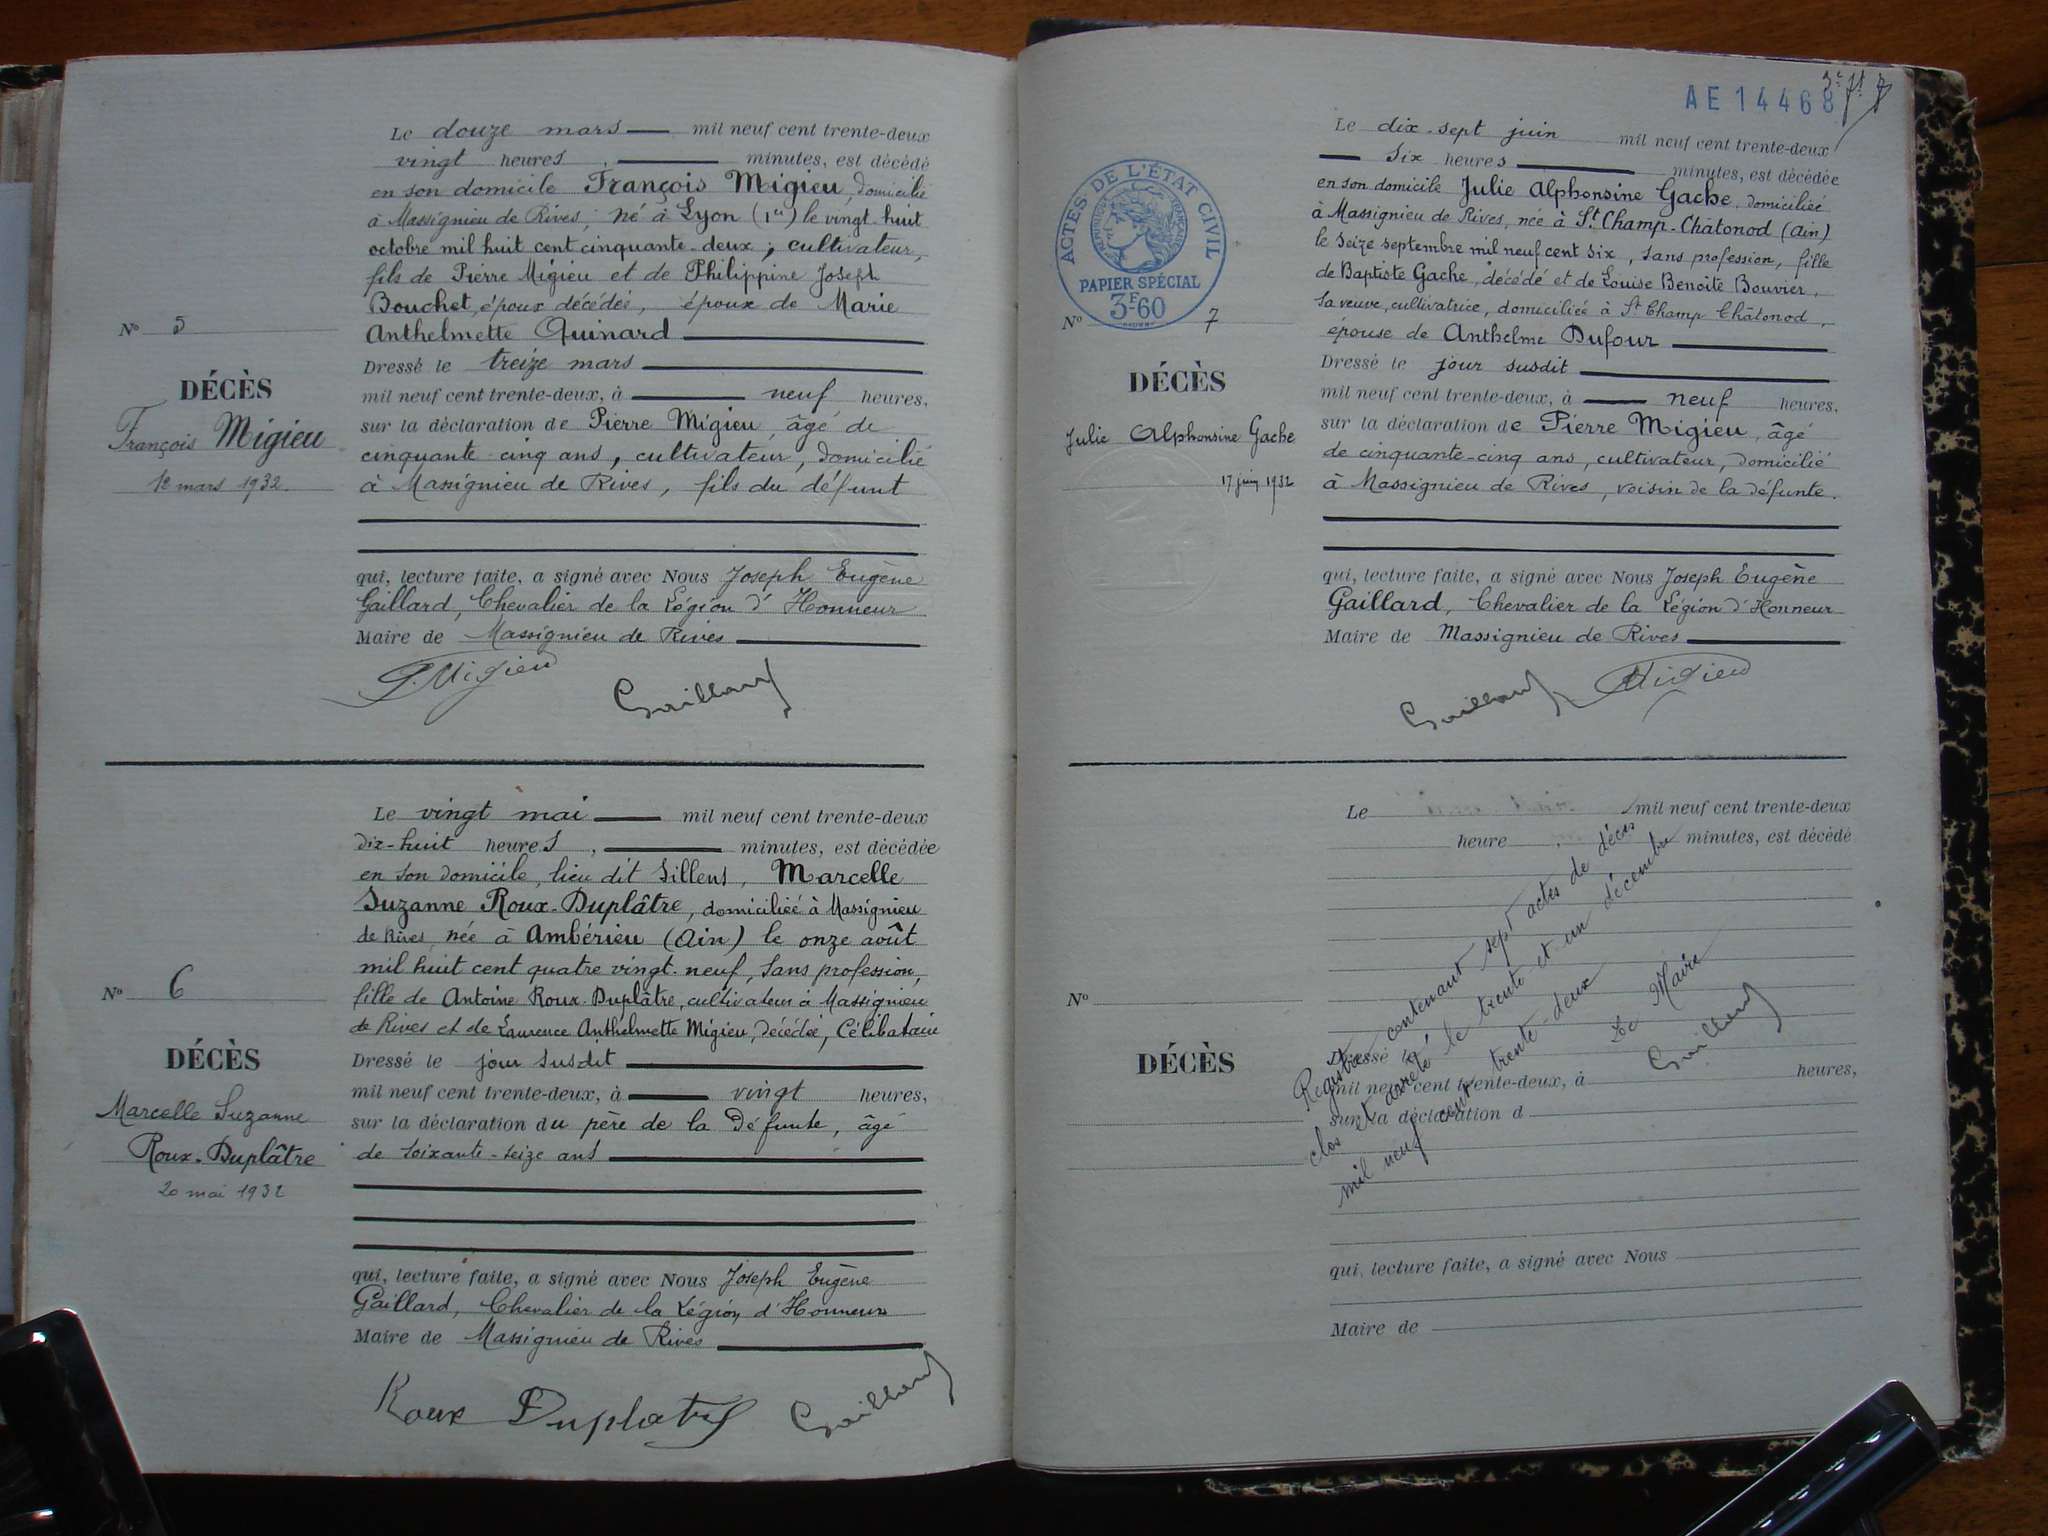 Le douze mars mil neuf cent trente-deux
vingt heures, minutes, est décédé
en son domicile François Migieu, domicilié
à Massignieu de Rives, né à Lyon (1er) le vingt-huit
octobre mil huit cent cinquante-deux, cultivateur,
fils de Pierre Migieu et de Philippine Joseph
Bouchet, époux décédés, époux de Marie
Anthelmette Quinard
Dressé le treize mars
mil neuf cent trente-deux, à neuf heures,
sur la déclaration de Pierre Migieu, âgé de
cinquante-cinq ans, cultivateur, domicilié
à Massignieu de Rives, fils du défunt
qui, lecture faite, a signé avec Nous Joseph Eugène
Gaillard, Chevalier de la Légion d'Honneur
Maire de Massignieu de Rives
P. Migieu Gaillard
No 5
DÉCÈS
François Migieu
12 mars 1932
Le vingt mai mil neuf cent trente-deux
dix-huit heures, minutes, est décédée
en son domicile, lieu dit Sillens, Marcelle
Suzanne Roux-Duplâtre, domiciliée à Massignieu
de Rives, née à Ambérieu (Ain) le onze août
mil huit cent quatre vingt-neuf, sans profession,
fille de Antoine Roux-Duplâtre, cultivateur à Massignieu
de Rives et de Laurence Anthelmette Migieu, décédée, Célibataire
Dressé le jour susdit
mil neuf cent trente-deux, à vingt heures,
sur la déclaration du père de la défunte, âgé
de soixante-seize ans
qui, lecture faite, a signé avec Nous Joseph Eugène
Gaillard, Chevalier de la Légion d'Honneur
Maire de Massignieu de Rives
Roux Duplatre Gaillard
No 6
DÉCÈS
Marcelle Suzanne
Roux-Duplâtre
20 mai 1932
AE 14468
ACTES DE L'ÉTAT CIVIL
RÉPUBLIQUE FRANÇAISE
PAPIER SPÉCIAL
3F60
Le dix-sept juin mil neuf cent trente-deux
six heures minutes, est décédée
en son domicile Julie Alphonsine Gache, domiciliée
à Massignieu de Rives, née à St Champ-Châtonod (Ain)
le seize septembre mil neuf cent six, sans profession, fille
de Baptiste Gache, décédé et de Louise Benoite Bouvier,
sa veuve, cultivatrice, domiciliée à St Champ Châtonod,
épouse de Anthelme Dufour
Dressé le jour susdit
mil neuf cent trente-deux, à neuf heures,
sur la déclaration de Pierre Migieu, âgé
de cinquante-cinq ans, cultivateur, domicilié
à Massignieu de Rives, voisin de la défunte.
qui, lecture faite, a signé avec Nous Joseph Eugène
Gaillard, Chevalier de la Légion d'Honneur
Maire de Massignieu de Rives
Gaillard P. Migieu
No 7
DÉCÈS
Julie Alphonsine Gache
17 juin 1932
Le mil neuf cent trente-deux
heure minutes, est décédé
No
DÉCÈS
Dressé le
mil neuf cent trente-deux, à heures,
sur la déclaration d
qui, lecture faite, a signé avec Nous
Maire de
Registre contenant sept actes de décès
clos et arrêté le trente-et-un décembre
mil neuf cent trente-deux
Le Maire
Gaillard